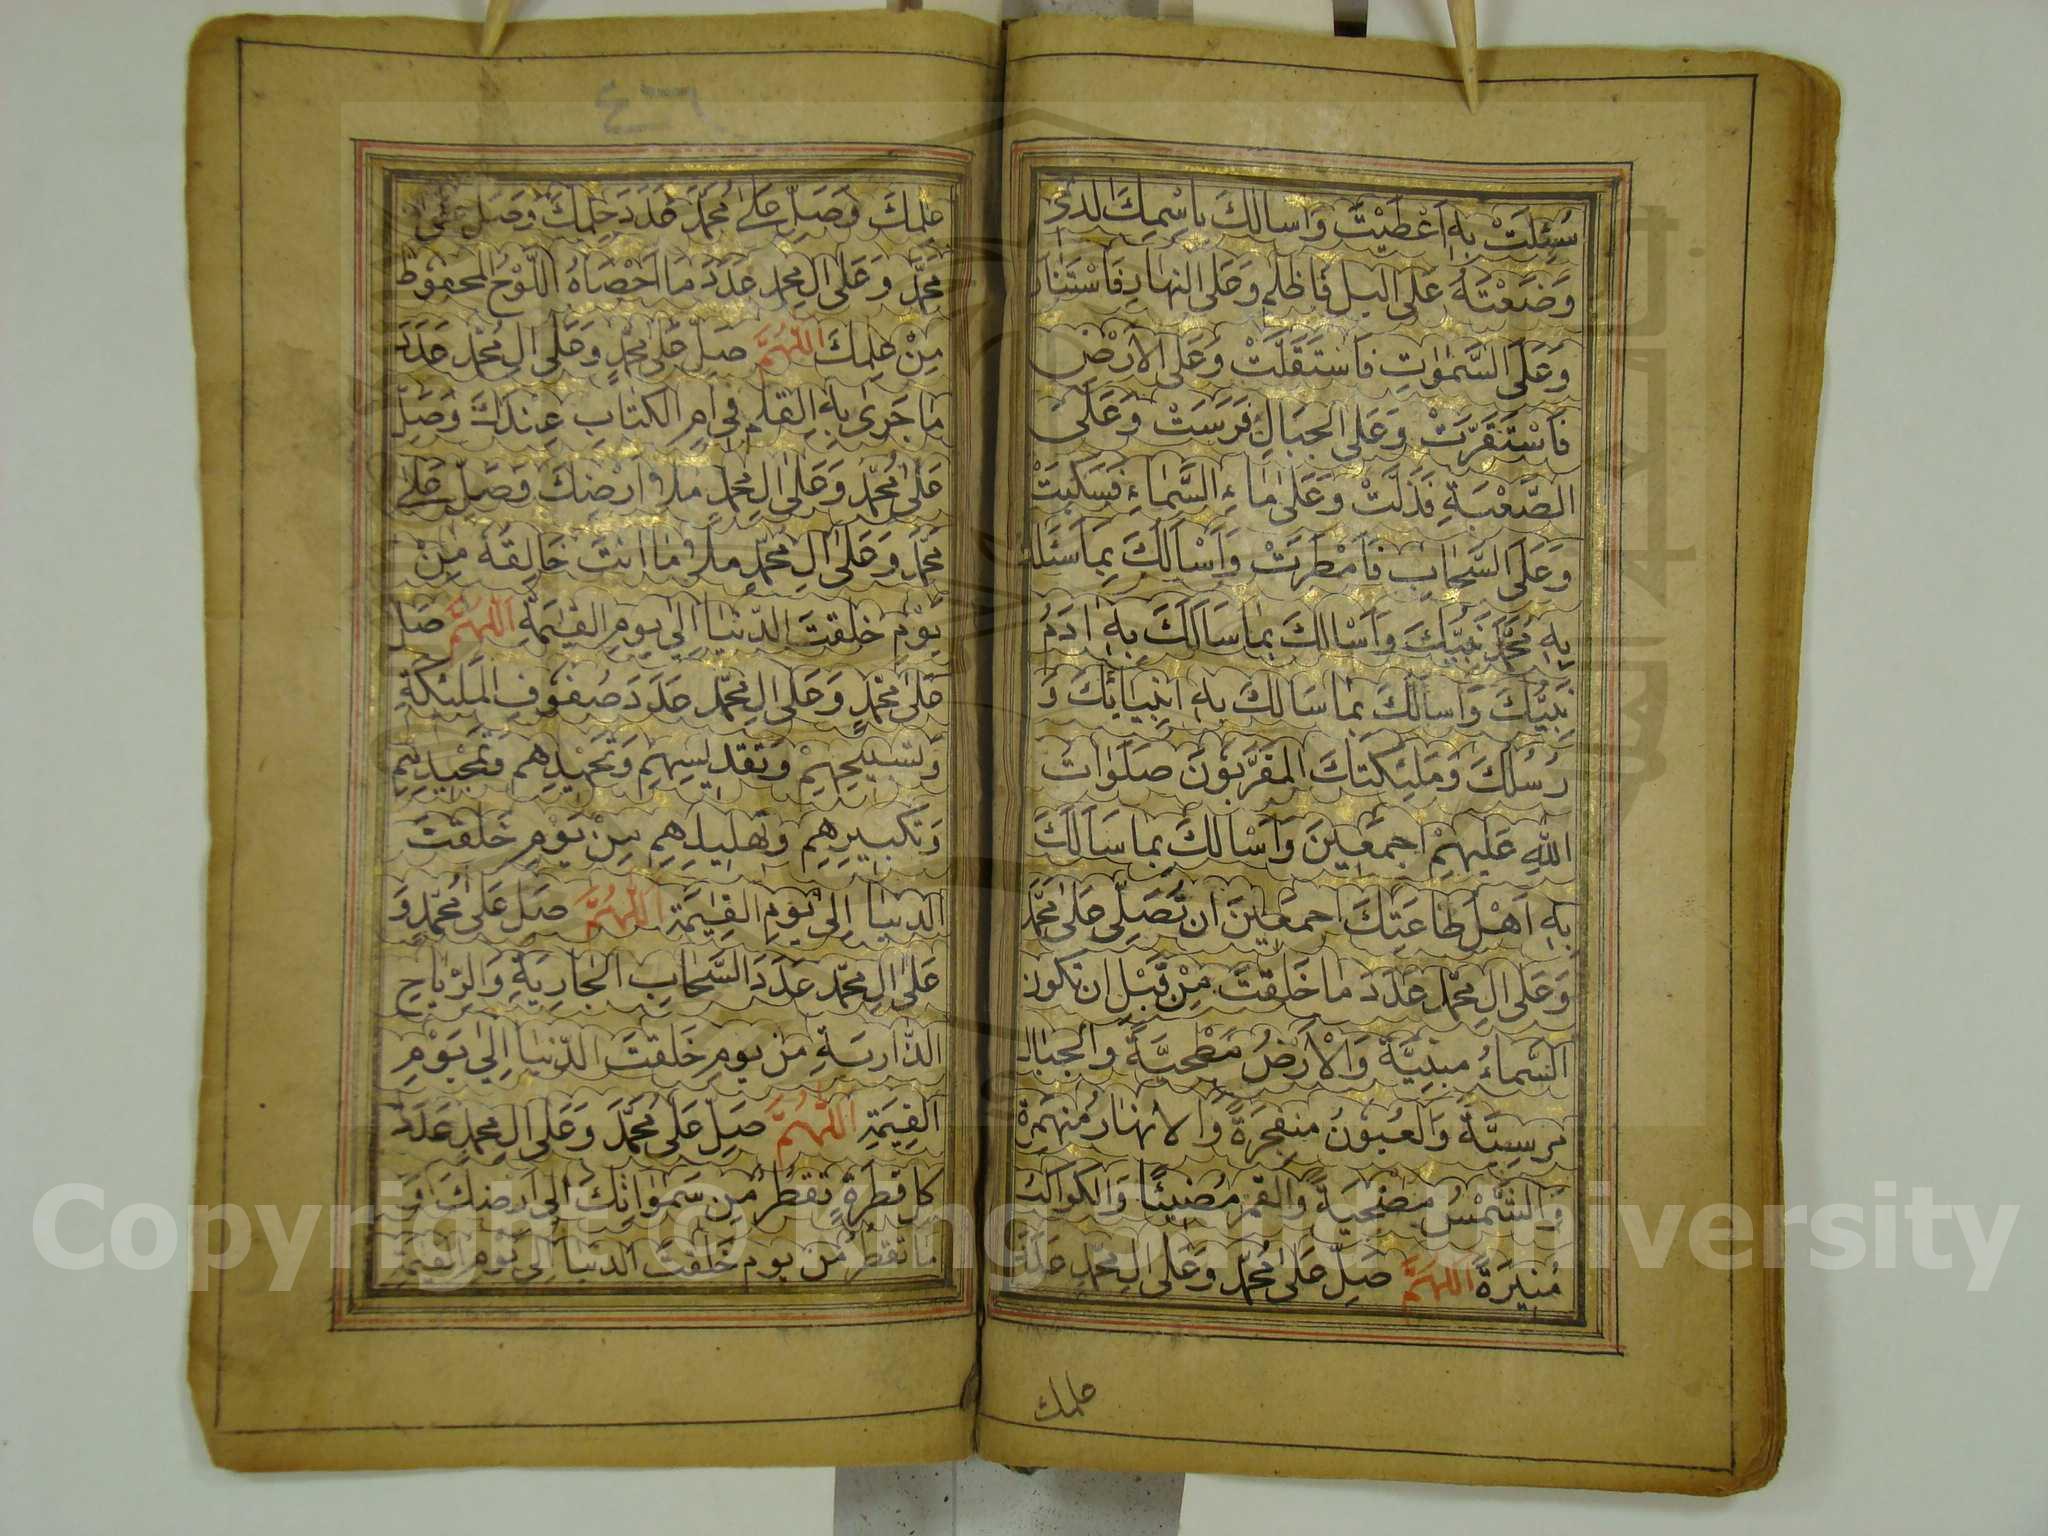 سُئِلَتْ بِهِ اَعْطَيْتَ وَاَسالكَ بِاسْمِكَ الذى
وَضَعْتَهُ عَلى اليل فَاظلم وَعَلى النهارِ فَاسْتَنَار
وَعَلَى السَّمٰوٰتِ فَاسْتَقَلَّتْ وَعَلَى الاَرْضِ
فَاسْتَقَرَّتْ وَعَلَى الجبَالِ فَرَسَتْ وَعَلَى
الصَّعْبَةِ فَذَلَّتْ وَعَلَى مَاءِ السَّمَاءِ فَسَكَبَتْ
وَعَلَى السَّحَابِ فَاَمْطَرَتْ وَاَسْاَلُكَ بِمَا سَئَلك
بِهِ مُحَمَّدٌ نَبِيُّكَ وَاَسْالكَ بما سَاَلَكَ بِهِ اٰدَمُ
نَبِيُّكَ وَاَسالكَ بمَا سَالكَ بِهِ انبِيَائكَ وَ
رُسُلكَ وَمَلئِكَتكَ المقَرَّبُونَ صَلَوَات
اللهِ عَلَيهِمْ اجمَعِينَ وَاَسْالكَ بما سَاَلَكَ
بِهِ اَهْل طَاعَتِكَ اجمَعِينَ ان تُصَلِّى عَلى مُحَمَّد
وَعَلَى ال محمّد عَدَدَ مَا خَلَقتَ مِنْ قَبْلِ ان تكون
السَّمَاءُ مبنِيَّةً وَالْاَرْضُ مَطْحِيَّةً وَالجبَال
مرسِيَّةً وَالعُيُونُ منفجِرَةً وَالانهَارُ مُنهَمِرَة
وَالشَّمْسُ مضْحِيَةً وَالقمرُ مُضيئًا وَالكواكب
مُنِيرَةً اَللّهُمَّ صَلِّ عَلى مُحَمَّدٍ وَعَلى ال محمّدٍ عَدَدَ
علمك
٤٦
عِلمِكَ وَصَلِّ عَلىٰ مُحَمَّد عَدَدَ حِلمِكَ وَصَلِ عَلى
مُحَمَّد وَعَلى الِ محمد عَدَدَ مَا اَحْصَاهُ اللّوْحُ المحفوظ
مِنْ عِلمِكَ اللّهُمَّ صَلِّ عَلى محمّدٍ وَعَلى ال محمّد عَدَدَ
مَا جَرى بِهِ القلم فى امِ الكتابِ عِندَكَ وَصَلِّ
عَلى مُحَمّد وَعَلى الِ محمّد ملاَ اَرْضِكَ وَصَلِّ عَلىٰ
مُحَمّد وَعَلى الِ محمّدٍ ملاَ مَا انتَ خَالِقُهُ مِنْ
يَوْمِ خلقتَ الدّنيَا اِلى يومِ القيٰمَةِ اَللّهُمَّ صَل
عَلى محمّدٍ وَعَلى الِ محمّد عَدَدَ صُفُوفِ المَلئِكَةِ
وَتسْبيحِهِمْ وَتقديسِهِم وَتحْمِيْدِهم وَتمْجيدِهِم
وَتكبيرِهِم وَتهليلِهِم مِنْ يَوْمِ خَلقتَ
الدنيَا اِلى يَوْمِ القِيٰمَةِ اللّهُمَّ صَل عَلى مُحَمّدٍ وَ
عَلى الِ محمّد عَدَدَ السَّحَابِ الجَارِيَةِ وَالرِّيَاحِ
الذَّاريَةِ مِنْ يومِ خَلقتَ الدّنيَا اِلى يَوْمِ
القِيٰمَةِ اللّهُمَّ صَلِّ عَلى مُحَمَّد وَعَلى ال محمّدٍ عَدَدَ
كل قطرَةٍ تقطُرُ مِن سَمٰوٰاتِكَ اِلى اَرضِكَ وَ
مَا تقطرُ مِن يوم خَلقتَ الدنيَا اِلى يَوْمِ القِيٰمَةِ
Copyright © King Saud University